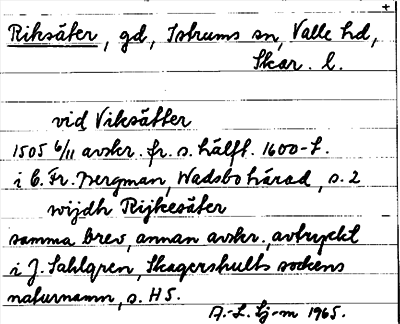 Riksäter, gd, Istrums sn, Valle hd,
Skar. l.
vid Viksätter
1505 6/11 avskr. fr. s. hälft. 1600-t.
i C. Fr. Bergman, Wadsbo härad, s. 2
wijdh Rijkesäter
samma brev, annan avskr., avtryckt
i J. Sahlgren, Skagershults sockens
naturnamn, s. H5.
A.-L. Lj-m 1965.